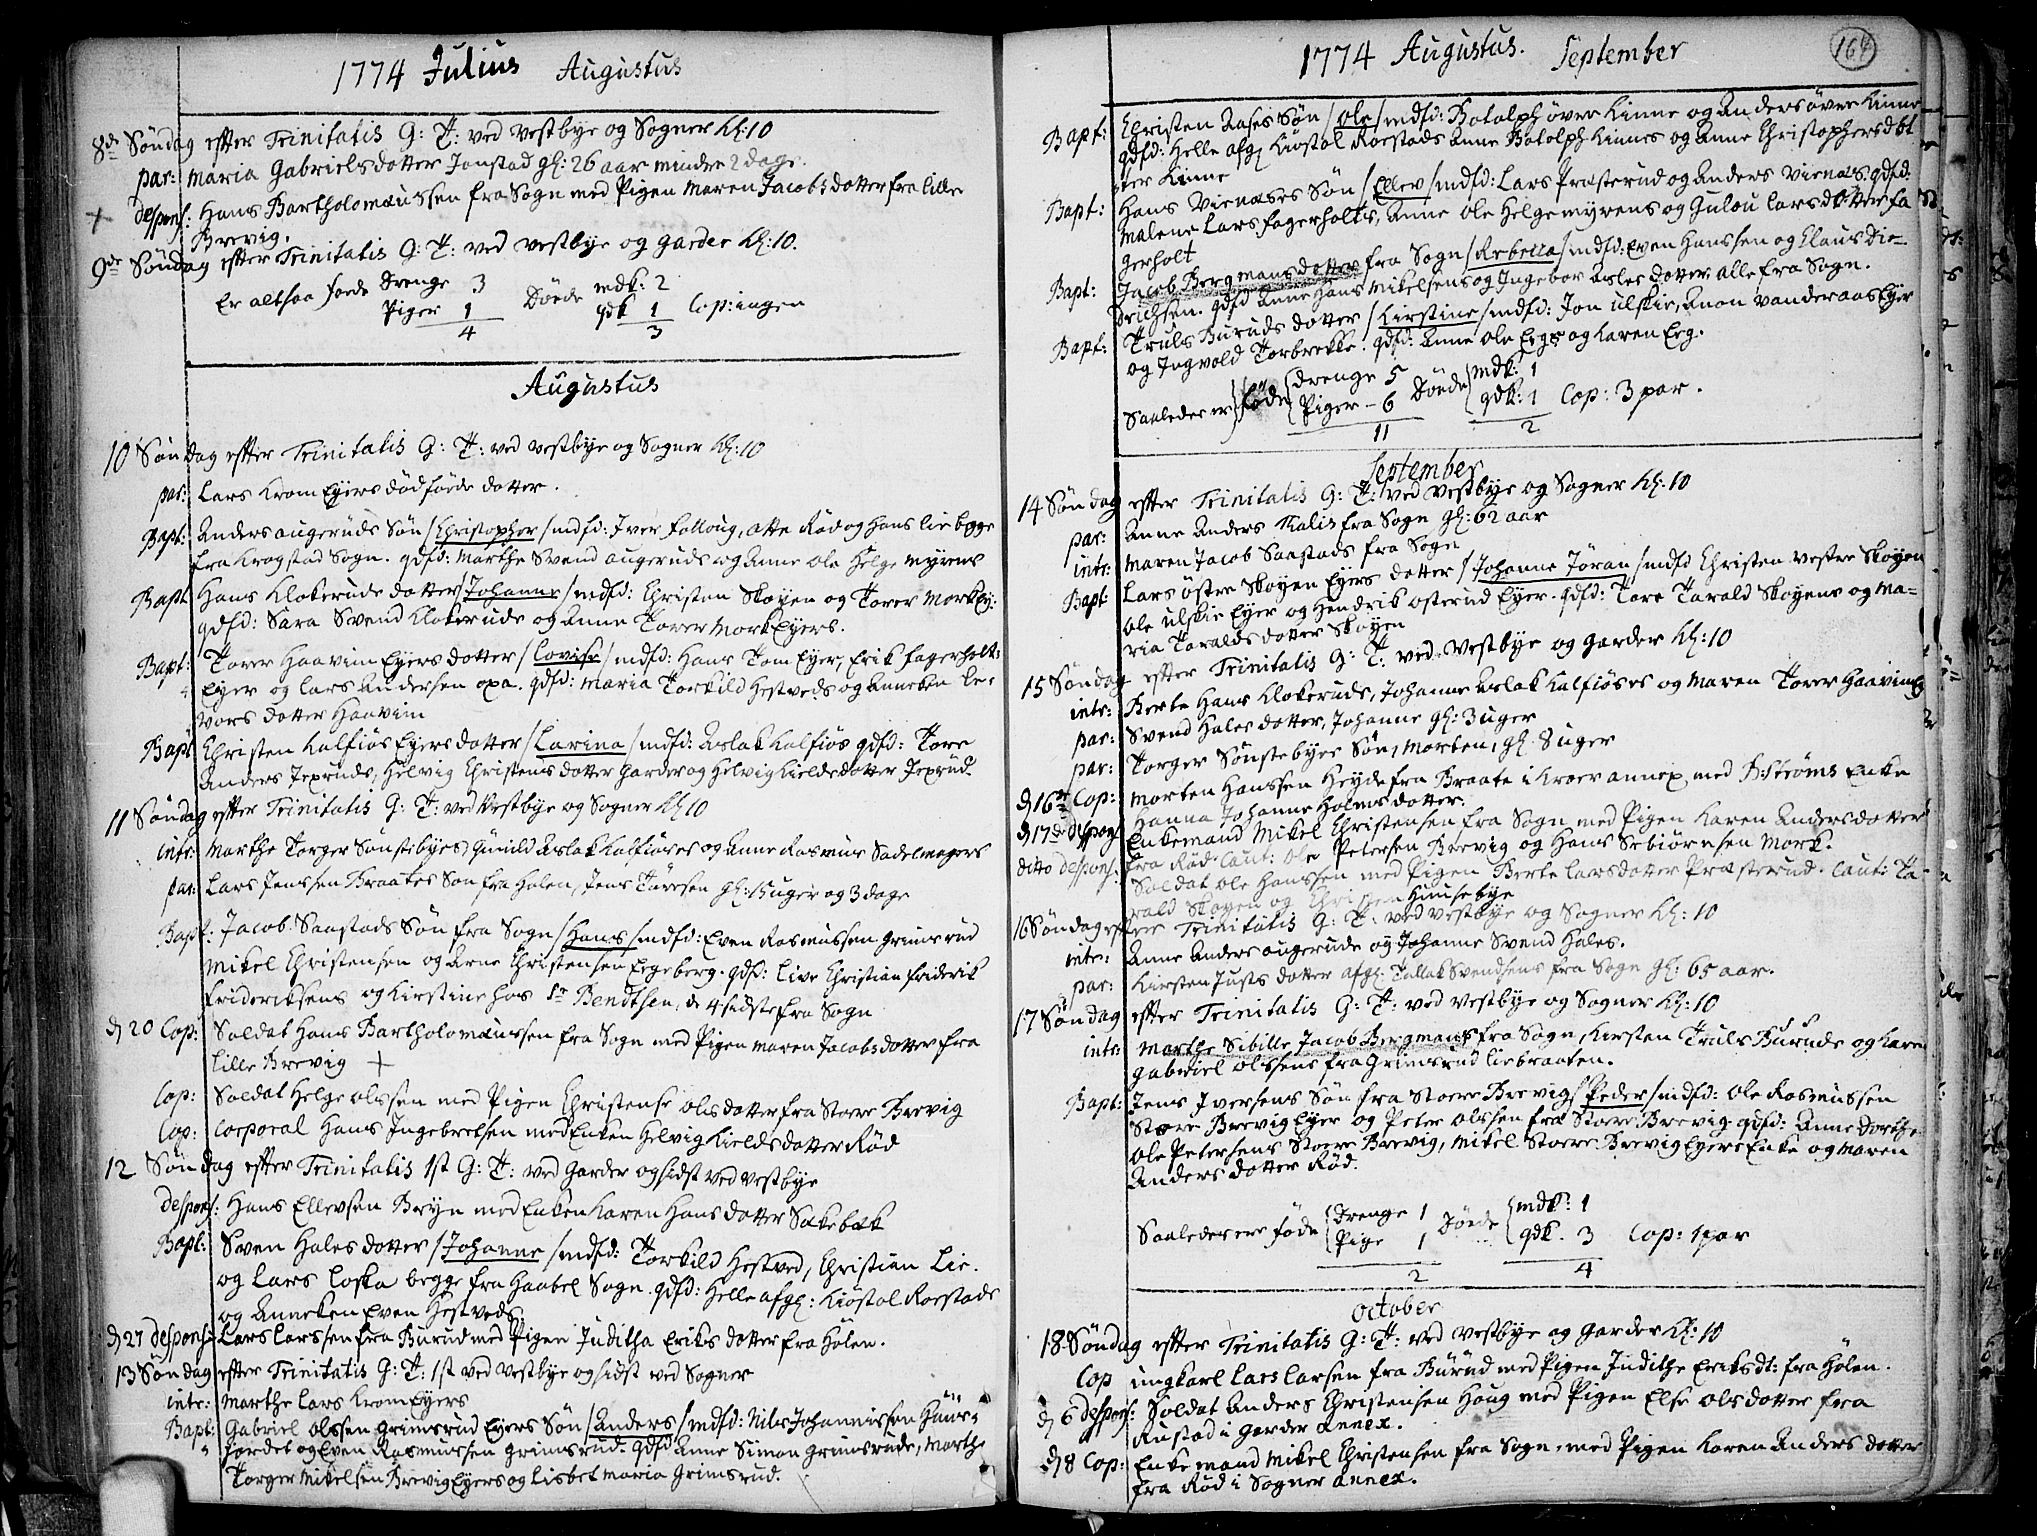 1774 Julius Augustus
8de Søndag efter Trinitatis G: T: ved Vestbye og Sogner Kl: 10
par: Maria Gabrielsdotter Jonstad gl: 26 aar mindre 2 dage.
+ despons: Hans Bartholomæussen fra Sogn med Pigen Maren Jacobsdotter fra lille
Brevig.
9de Søndag efter Trinitatis G: T: ved Vestbye og Garder Kl: 10.
Er altsaa føde Drenge 3 Døde mdk: 2
Piger 1 qdk 1 Cop: ingen
4 3
Augustus
10 Søndag efter Trinitatis G: T: ved Vestbye og Sogner Kl: 10
par: Lars Krom Eyers dødføde dotter.
Bapt: Anders Augeruds Søn /Christopher/ mdfd: Iver Folloug, Otte Rød og Hans Lie begge
fra Krogstad Sogn. qdfd: Marthe Svend Augeruds og Anne Ole Helgemyrens
Bapt: Hans Klokeruds dotter /Johanne/ mdfd: Christen Skoyen og Torer Mork Ey:
qdfd: Sara Svend Klokeruds og Anne Torer Mork Eyers.
Bapt: Torer Haavim Eyers dotter /Lovise/ mdfd: Hans Tom Eyer, Erik Fagerholt-
Eyer og Lars Andersen oxa. qdfd: Maria Torkild Hestveds og Anneken Le-
vors dotter Haavim
Bapt: Christen Kalfiøs Eyers dotter /Karina/ mdfd: Aslak Kalfiøs qdfd: Tore
Anders Jexruds, Helvig Christens dotter Garder og Helvig Kields dotter Jexrud.
11 Søndag efter Trinitatis G: T: ved Vestbye og Sogner Kl 10
intr: Marthe Torger Sønstebyes, Gunild Aslak Kalfiøses og Anne Rasmus Sadelmagers
par: Lars Jenssen Braates Søn fra Holen, Jens Tøresen gl: 15 uger og 3 dage
Bapt: Jacob Saastads Søn fra Sogn /Hans/ mdfd: Even Rasmussen Grimsrud
Mikel Christensen og Arne Christensen Ergeberg. qdfd: Live Christian Friderik
Frideriksens og Kirstine hos Sr Bendtsen, de 4 sidste fra Sogn
d 20 Cop: Soldat Hans Bartholomæussen fra Sogn med Pigen Maren Jacobsdotter fra
lille Brevig +
Cop: Soldat Helge Olssen med Pigen Christense Olsdotter fra Store Brevig
Cop: Corporal Hans Ingebretsen med Enken Helvig Kieldsdotter Rød
12 Søndag efter Trinitatis 1st G: T: ved Garder og sidst ved Vestbye
despons: Hans Ellevsen Bryn med Enken Karen Hans dotter Sækebæk
Bapt: Sven Hales dotter /Johanne/ mdfd: Torkild Hestved, Christian Lie.
og Lars Loska begge fra Haabel Sogn. qdfd: Helle afgl: Kiøstol Roestads
og Anneken Even Hestveds.
d 27 despons: Lars Larssen fra Burud med Pigen Juditha Eriks dotter fra Hølen.
13 Søndag efter Trinitatis G: T: 1st ved Vestbye og sidst ved Sogner
intr: Marthe Lars Krom Eyers
Bapt: Gabriel Olssen Grimsrud Eyers Søn /Anders/ mdfd: Nils Johannissen Huus-
fordet og Even Rasmussen Grimsrud. qdfd: Anne Simon Grimsruds, Marthe
Torger Mikelsen Brevig Eyers og Lisbet Maria Grimsrud.
1774 Augustus. September 164
Bapt: Christen Aases Søn /Ole/ mdfd: Botolph øvre Kinne og Anders øvre Kinne
qdfd: Helle afgl Kiøstol Roestads Anne Botolph Kinnes og Anne Christophersdot
ter Kinne
Bapt: Hans Viernæses Søn /Ellev/ mdfd: Lars Præsterud og Anders Viernæs. qdfd:
Malene Lars Fagerholtes, Anne Ole Helgemyrens og Gulou Larsdotter Fa
gerholt
Bapt: Jacob Bergmans dotter fra Sogn /Rebecca/ mdfd: Even Hanssen og Claus Die-
drichsen. qdfd Anne Hans Mikelsens og Ingebor Asles dotter, alle fra Sogn.
Bapt: Truls Buruds dotter /Kirstine/ mdfd: Jon Ulskie, Anon Vanderaas Eyer
og Ingvold Torbrekke. qdfd: Anne Ole Erges og Karen Erg.
Saaledes er føde Drenge 5 Døde mdk: 1
Piger - 6 qdk: 1 Cop: 3 par.
11 2
September
14 Søndag efter Trinitatis G: T: ved Vestbye og Sogner Kl: 10
par: Anne Anders Kalis fra Sogn gl: 62 aar
intr: Maren Jacob Saastads fra Sogn
Bapt Lars østre Skoyen Eyers dotter /Johanne Jøran/ mdfd Christen Vestre Skoyen
Ole Ulskie Eyer og Hendrik Osterud Eyer. qdfd: Tore Tarald Skoyens og Ma-
ria Taralds dotter Skoyen
15 Søndag efter Trinitatis G: T: ved Vestbye og Garder Kl: 10
intr: Berte Hans Klokeruds, Johanne Aslak Kalfiøses og Maren Torer Haavim E
par: Svend Hales dotter, Johanne gl: 3 uger
par: Torger Sønstebyes Søn, Morten, gl. 8 uger
d 16de Cop: Morten Hanssen Heyde fra Braate i Kroer annex med B: Strøms Enke
Hanna Johanne Holms dotter.
d 17de despons: Enkemand Mikel Christensen fra Sogn med Pigen Karen Andersdotter
fra Rød. Caut: Ole Petersen Brevig og Hans Sebiørnsen Mork.
ditto despons: Soldat Ole Hanssen med Pigen Berte Larsdotter Præsterud. Caut: Ta-
rald Skoyen og Christen Huusebye
16 Søndag efter Trinitatis G: T: ved Vestbye og Sogner Kl: 10
intr: Anne Anders Augeruds og Johanne Svend Hales.
par: Kirsten Justs dotter afgl: Tallak Svendsens fra Sogn gl: 65 aar.
17 Søndag efter Trinitatis G: T: ved Vestbye og Sogner Kl: 10
intr: Marthe Sibille Jacob Bergmans fra Sogn, Kirsten Truls Buruds og Karen
Gabriel Olssens fra Grimsrud Liebraaten.
Bapt: Jens Iversens Søn fra Store Brevig /Peder/ mdfd: Ole Rasmussen
Store Brevig Eyer og Peter Olssen fra Store Brevig. qdfd: Anne Dorthe
Ole Petersens Store Brevig, Mikel Store Brevig Eyers Enke og Maren
Anders dotter Rød.
Saaledes er føde Drenge 1 Døde mdk: 1
Pige 1 qdk. 3 Cop: 1 par
2 4
October
18 Søndag efter Trinitatis G: T: ved Vestbye og Garder Kl: 10
Cop ungkarl Lars Larsen fra Burud med Pigen Judithe Eriksdt: fra Hølen.
d 6 despons: Soldat Anders Christensen Houg med Pigen Else Olsdotter fra
Rustad i Garder annex.
d 8 Cop: Enkemand Mikel Christensen fra Sogn, med Pigen Karen Anders dotter
fra Rød i Sogner annex.